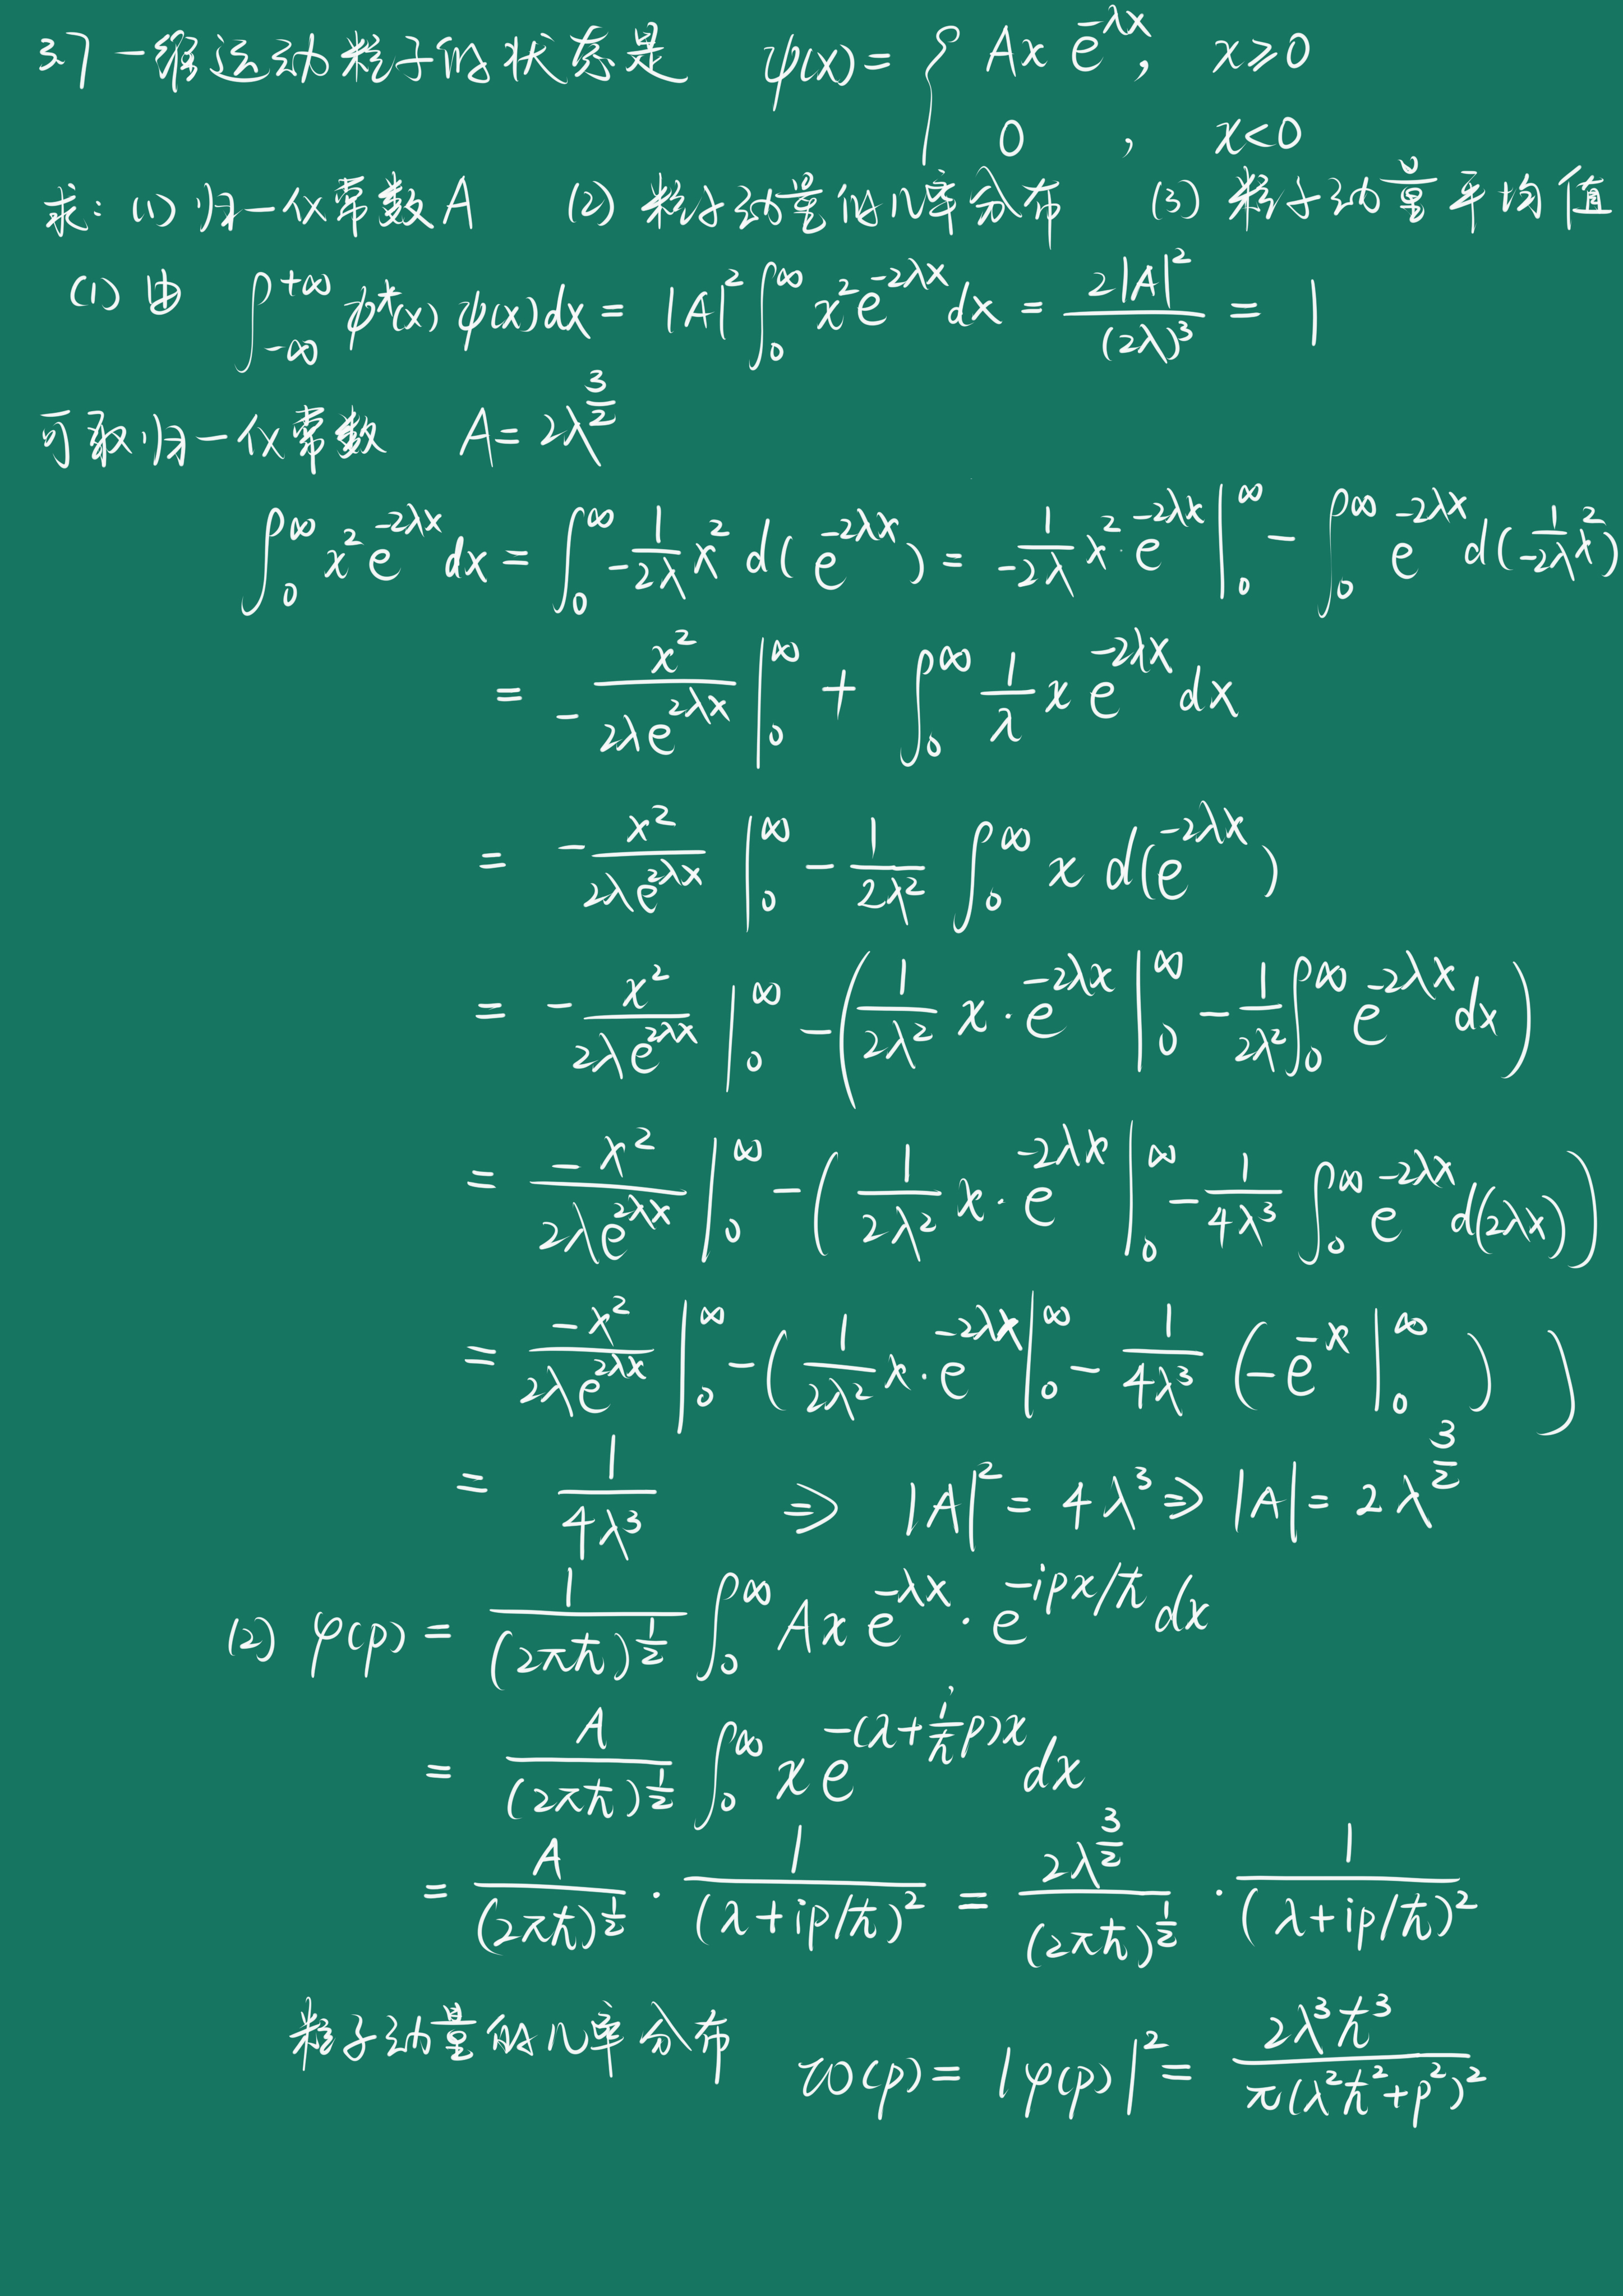 3.7 一维运动粒子的状态是 ψ(x)= { Ax e^{-λx}, x≥0
0 , x<0
求: (1) 归一化常数A (2) 粒子动量的几率分布 (3) 粒子动量平均值
(1) 由 ∫_{-∞}^{+∞} ψ*(x) ψ(x)dx = |A|² ∫_0^∞ x² e^{-2λx} dx = 2|A|²/(2λ)³ = 1
可取归一化常数 A = 2λ^{3/2}
∫_0^∞ x² e^{-2λx} dx = ∫_0^∞ -1/2λ x² d( e^{-2λx} ) = 1/-2λ x²·e^{-2λx} |_0^∞ - ∫_0^∞ e^{-2λx} d(1/-2λ x²)
= - x²/2λe^{2λx} |_0^∞ + ∫_0^∞ 1/λ x e^{-2λx} dx
= - x²/2λe^{2λx} |_0^∞ - 1/2λ² ∫_0^∞ x d(e^{-2λx})
= - x²/2λe^{2λx} |_0^∞ - ( 1/2λ² x·e^{-2λx} |_0^∞ - 1/2λ² ∫_0^∞ e^{-2λx} dx )
= -x²/2λe^{2λx} |_0^∞ - ( 1/2λ² x·e^{-2λx} |_0^∞ - 1/4λ³ ∫_0^∞ e^{-2λx} d(2λx) )
= -x²/2λe^{2λx} |_0^∞ - ( 1/2λ² x·e^{-2λx} |_0^∞ - 1/4λ³ ( -e^{-x} |_0^∞ ) )
= 1/4λ³ ⇒ |A|² = 4λ³ ⇒ |A| = 2λ^{3/2}
(2) φ(p) = 1/(2πħ)^{1/2} ∫_0^∞ Ax e^{-λx}·e^{-ipx/ħ} dx
= A/(2πħ)^{1/2} ∫_0^∞ x e^{-(λ+i/ħ p)x} dx
= A/(2πħ)^{1/2} · 1/(λ+ip/ħ)² = 2λ^{3/2}/(2πħ)^{1/2} · 1/(λ+ip/ħ)²
粒子动量的几率分布 w(p) = |φ(p)|² = 2λ³ħ³/π(λ²ħ²+p²)²